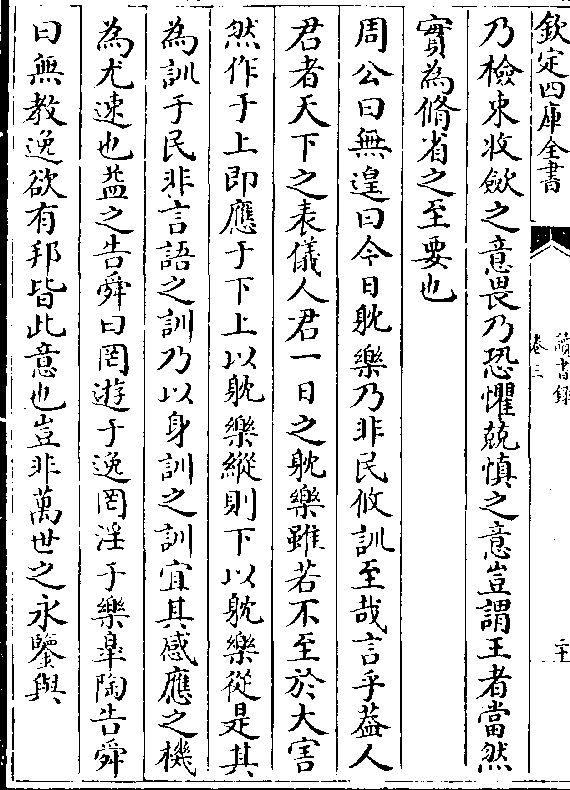 欽定四庫全書
讀書録
卷三
二十
乃檢束收斂之意畏乃恐懼兢慎之意豈謂王者當然
實為脩省之至要也
周公曰無遑曰今日躭樂乃非民攸訓至哉言乎葢人
君者天下之表儀人君一日之躭樂雖若不至於大害
然作于上即應于下上以躭樂縱則下以躭樂從是其
為訓于民非言語之訓乃以身訓之訓宜其感應之機
為尤速也益之告舜曰罔遊于逸罔淫于樂臯陶告舜
曰無教逸欲有邦皆此意也豈非萬世之永鑒與